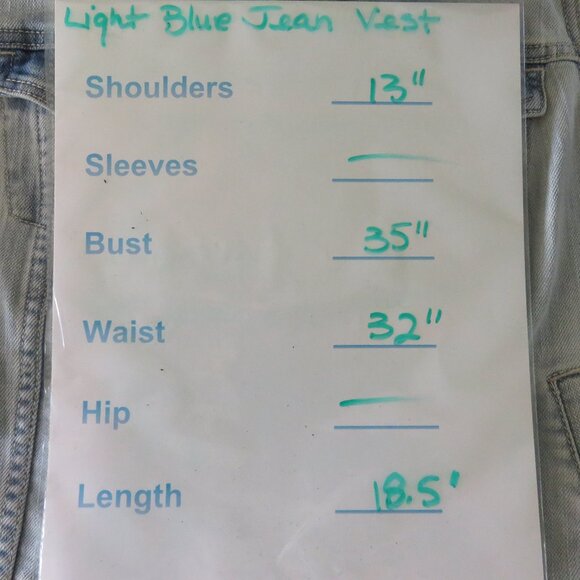 Light Blue Jean Vest
Shoulders 13"
Sleeves —
Bust 35"
Waist 32"
Hip —
Length 18.5'